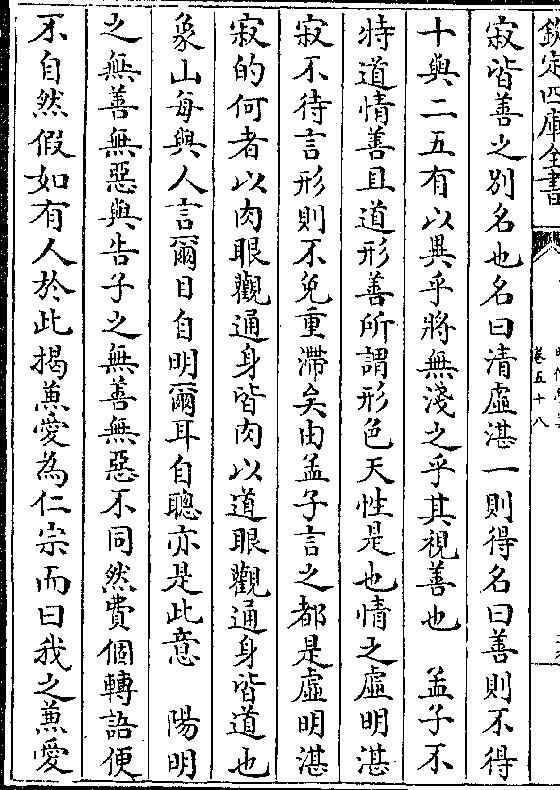 欽定四庫全書
卷五十八
寂皆善之別名也名曰清虛湛一則得名曰善則不得
十與二五有以異乎將無淺之乎其視善也　孟子不
特道情善且道形善所謂形色天性是也情之虛明湛
寂不待言形則不免重滯矣由孟子言之都是虛明湛
寂的何者以肉眼觀通身皆肉以道眼觀通身皆道也
象山每與人言爾目自明爾耳自聰亦是此意　陽明
之無善無惡與告子之無善無惡不同然費個轉語便
不自然假如有人於此揭兼愛為仁宗而曰我之兼愛